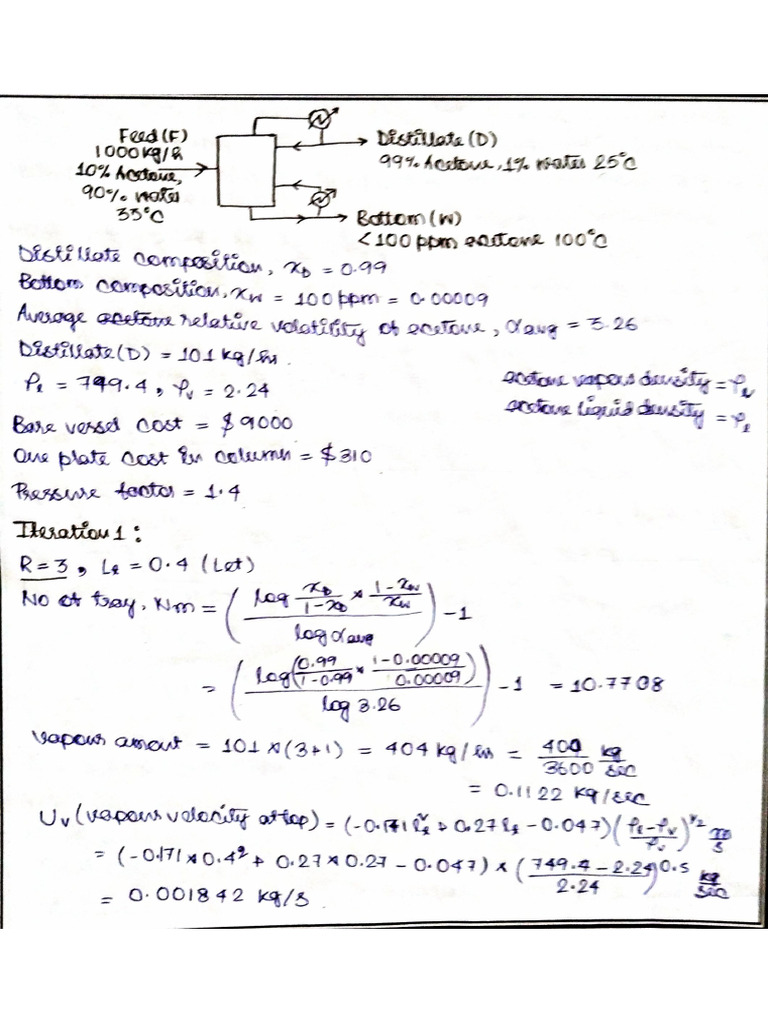 Feed (F)
1000 kg/h
10% Acetone,
90% water
35°C
Distillate (D)
99% Acetone, 1% water 25°C
Bottom (W)
< 100 ppm acetone 100°C
Distillate composition, x_D = 0.99
Bottom composition, x_W = 100 ppm = 0.00009
Average acetone relative volatility of acetone, α_avg = 3.26
Distillate (D) = 101 kg/hr.
ρ_L = 749.4, ρ_V = 2.24
acetone vapour density = ρ_V
acetone liquid density = ρ_L
Bare vessel cost = $9000
One plate cost in column = $310
Pressure factor = 1.4
Iteration 1:
R = 3, L_t = 0.4 (Let)
No of tray, N_m = (log (x_D/(1-x_D) × (1-x_W)/x_W) / log α_avg) - 1
= (log (0.99/(1-0.99) × (1-0.00009)/0.00009) / log 3.26) - 1 = 10.7708
Vapour amount = 101 × (3+1) = 404 kg/hr = 404/3600 kg/sec
= 0.1122 kg/sec
U_v (vapour velocity at top) = (-0.171 l_t² + 0.27 l_t - 0.047) ((ρ_L - ρ_V)/ρ_V)^1/2 m/s
= (-0.171 × 0.4² + 0.27 × 0.27 - 0.047) × ((749.4 - 2.24)/2.24)^0.5 kg/sec
= 0.001842 kg/s